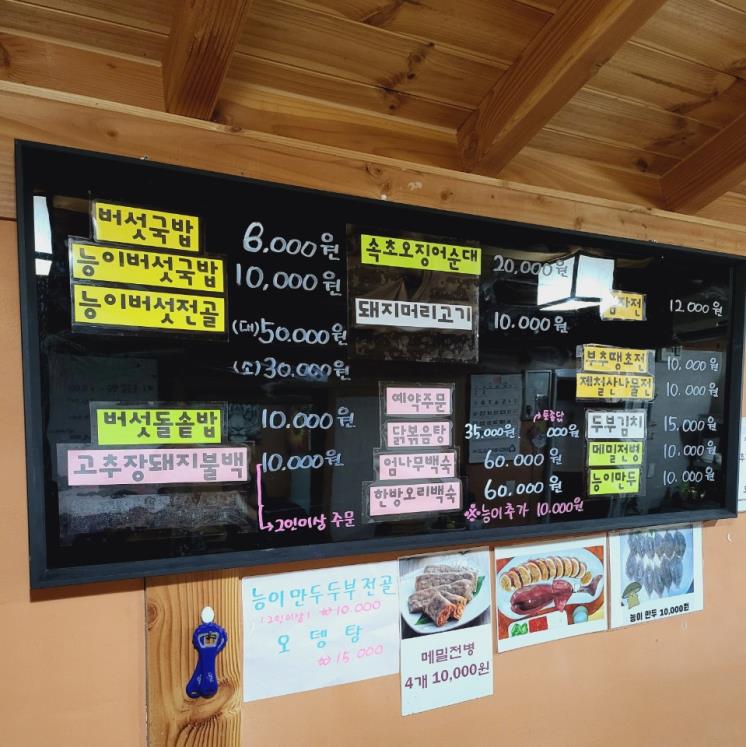 버섯국밥 8.000원
능이버섯국밥 10,000원
능이버섯전골 (대) 50.000원
(소) 30.000원
버섯돌솥밥 10.000원
고추장돼지불백 10.000원
2인이상 주문
속초오징어순대 20,000원
돼지머리고기 10.000원
예약주문
닭볶음탕 35,000원 000원
토종닭
엄나무백숙 60.000원
한방오리백숙 60.000원
능이추가 10.000원
자전 12.000원
부추땡초전 10.000원
제철산나물전 10.000원
두부김치 15,000원
메밀전병 10.000원
능이만두 10.000원
능이만두두부전골
(2인이상) ₩10.000
오뎅탕
₩15.000
메밀전병
4개 10,000원
능이 만두 10,000원